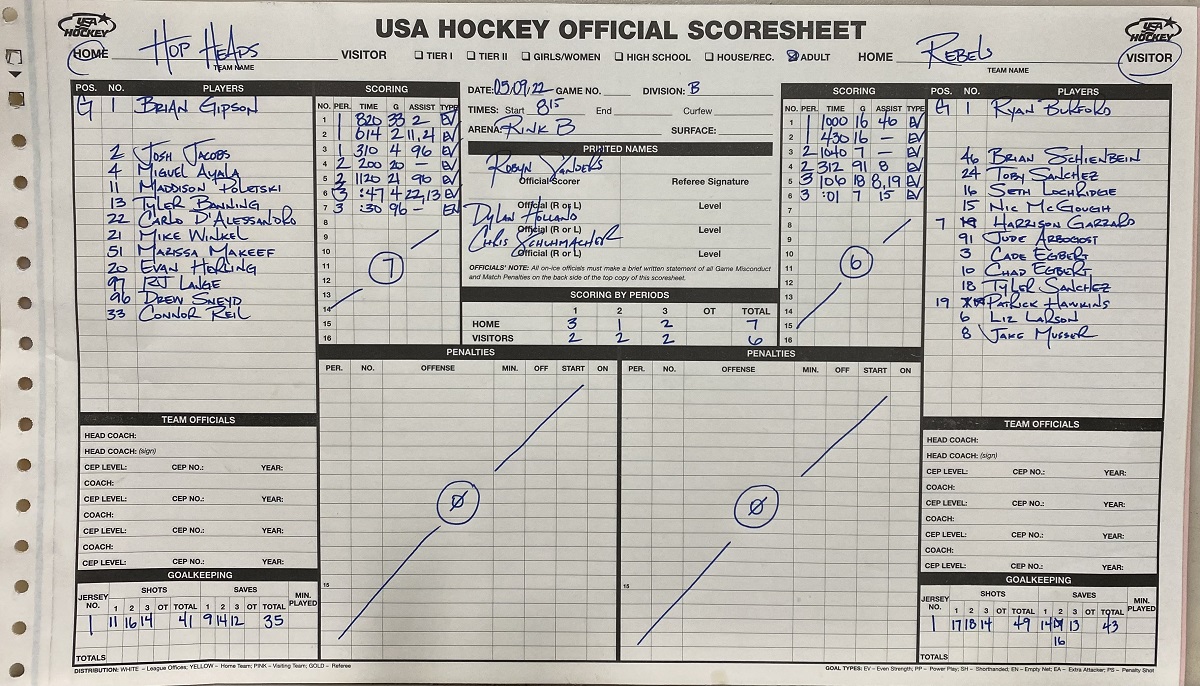 USA HOCKEY
USA HOCKEY OFFICIAL SCORESHEET
USA HOCKEY
HOME Hop Heads VISITOR TIER I TIER II GIRLS/WOMEN HIGH SCHOOL HOUSE/REC. ADULT HOME Rebels VISITOR
TEAM NAME TEAM NAME
POS. NO. PLAYERS
G 1 BRIAN GIPSON
2 JOSH JACOBS
4 MIGUEL AYALA
11 MADDISON POLETSKI
13 TYLER BANNING
22 CARLO D'ALESSANDRO
21 MIKE WINKEL
51 MARISSA MAKEEF
20 EVAN HERLING
97 RJ LANGE
96 DREW SNEYD
33 CONNOR REIL
SCORING
NO. PER. TIME G ASSIST TYPE
1 1 820 33 2 EV
2 1 614 2 11,21 EV
3 1 310 4 96 EV
4 2 200 20 – EV
5 2 1120 21 96 EV
6 3 :47 4 22,13 EV
7 3 :30 96 – EN
8
9
10
11
12
13
14
15
16
7
DATE: 05.09.22 GAME NO. DIVISION: B
TIMES: Start 8 15 End Curfew
ARENA: RINK B SURFACE:
PRINTED NAMES
Official Scorer Referee Signature
Official (R or L) Level
DYLAN HOLLAND
Official (R or L) Level
CHRIS SCHUHMACHER
Official (R or L) Level
OFFICIALS' NOTE: All on-ice officials must make a brief written statement of all Game Misconduct
and Match Penalties on the back side of the top copy of this scoresheet.
SCORING BY PERIODS
1 2 3 OT TOTAL
HOME 3 1 2 7
VISITORS 2 2 2 6
SCORING
NO. PER. TIME G ASSIST TYPE
1 1 1000 16 46 EV
2 1 430 16 – EV
3 2 1040 7 – EV
4 2 312 91 8 EV
5 3 106 18 8,19 EV
6 3 :01 7 15 EV
7
8
9
10
11
12
13
14
15
16
6
POS. NO. PLAYERS
G 1 RYAN BUKFORD
46 BRIAN SCHIENBEIN
24 TOBY SANCHEZ
16 SETH LOCHRIDGE
15 NIC McGOUGH
7 HARRISON GARRARD
91 JUDE ARBOGOST
3 CADE EGBERT
10 CHAD EGBERT
18 TYLER SANCHEZ
19 PATRICK HAWKINS
6 LIZ LARSON
8 JAKE MUSSER
PENALTIES
PER. NO. OFFENSE MIN. OFF START ON
0
15
PENALTIES
PER. NO. OFFENSE MIN. OFF START ON
0
15
TEAM OFFICIALS
HEAD COACH:
HEAD COACH: (sign)
CEP LEVEL: CEP NO.: YEAR:
COACH:
CEP LEVEL: CEP NO.: YEAR:
COACH:
CEP LEVEL: CEP NO.: YEAR:
COACH:
CEP LEVEL: CEP NO.: YEAR:
GOALKEEPING
JERSEY NO. SHOTS SAVES MIN. PLAYED
1 2 3 OT TOTAL 1 2 3 OT TOTAL
1 11 16 14 41 9 14 12 35
TOTALS
TEAM OFFICIALS
HEAD COACH:
HEAD COACH: (sign)
CEP LEVEL: CEP NO.: YEAR:
COACH:
CEP LEVEL: CEP NO.: YEAR:
COACH:
CEP LEVEL: CEP NO.: YEAR:
COACH:
CEP LEVEL: CEP NO.: YEAR:
GOALKEEPING
JERSEY NO. SHOTS SAVES MIN. PLAYED
1 2 3 OT TOTAL 1 2 3 OT TOTAL
1 17 18 14 49 14 13 43
16
TOTALS
DISTRIBUTION: WHITE – League Offices; YELLOW – Home Team; PINK – Visiting Team; GOLD – Referee
GOAL TYPES: EV – Even Strength; PP – Power Play; SH – Shorthanded; EN – Empty Net; EA – Extra Attacker; PS – Penalty Shot